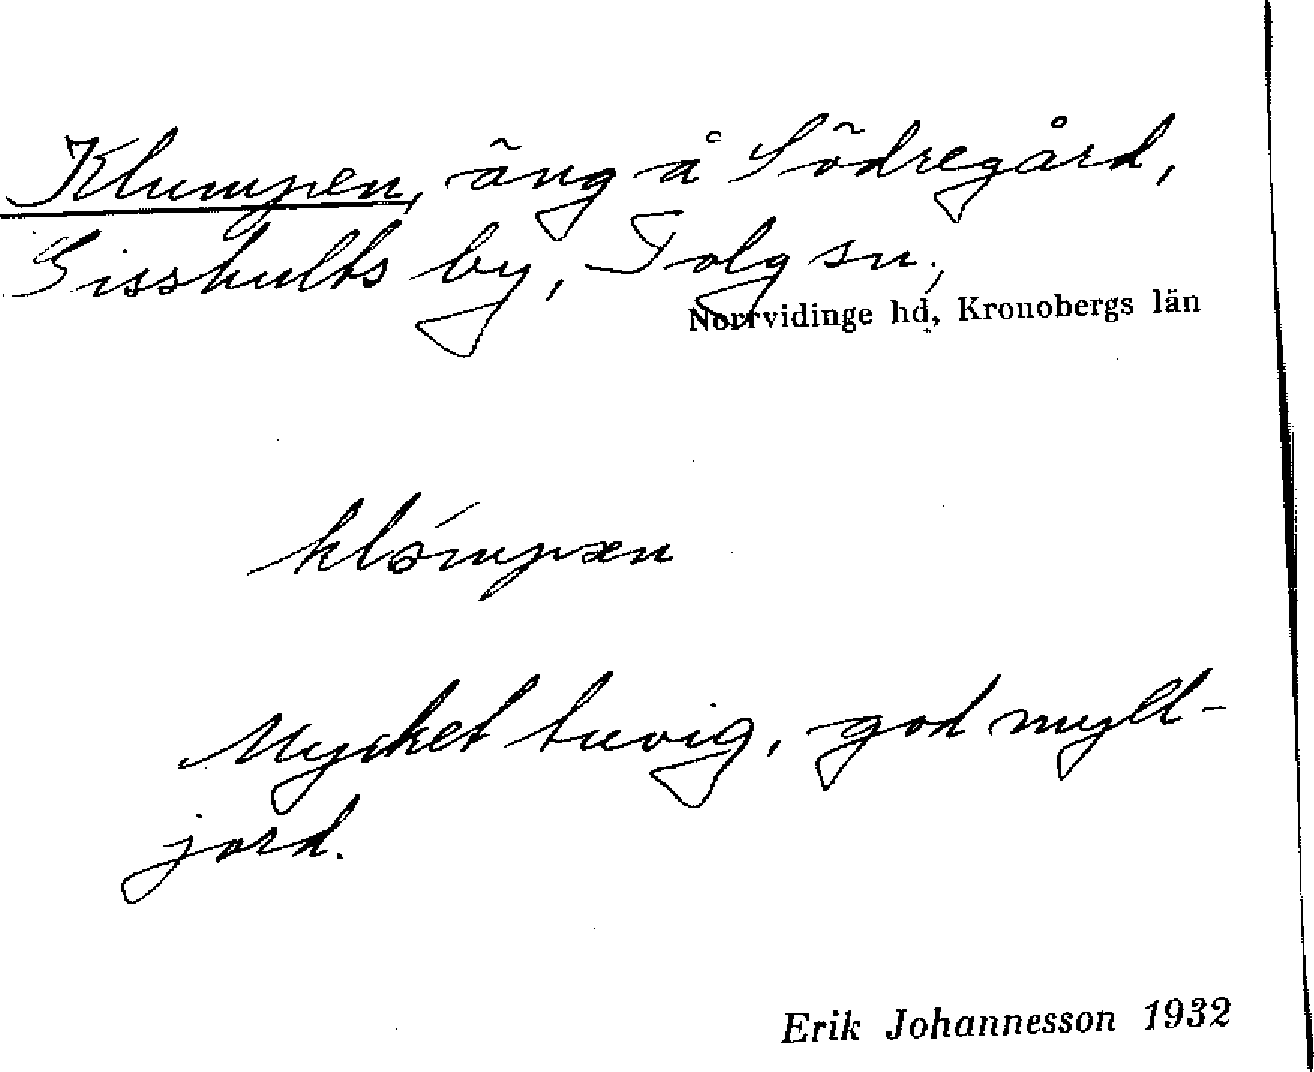 Klumpen, äng å Södregård,
Sisshults by, Tolg sn,
Norrvidinge hd, Kronobergs län
klómpæn
Mycket tuvig, god myll-
jord.
Erik Johannesson 1932